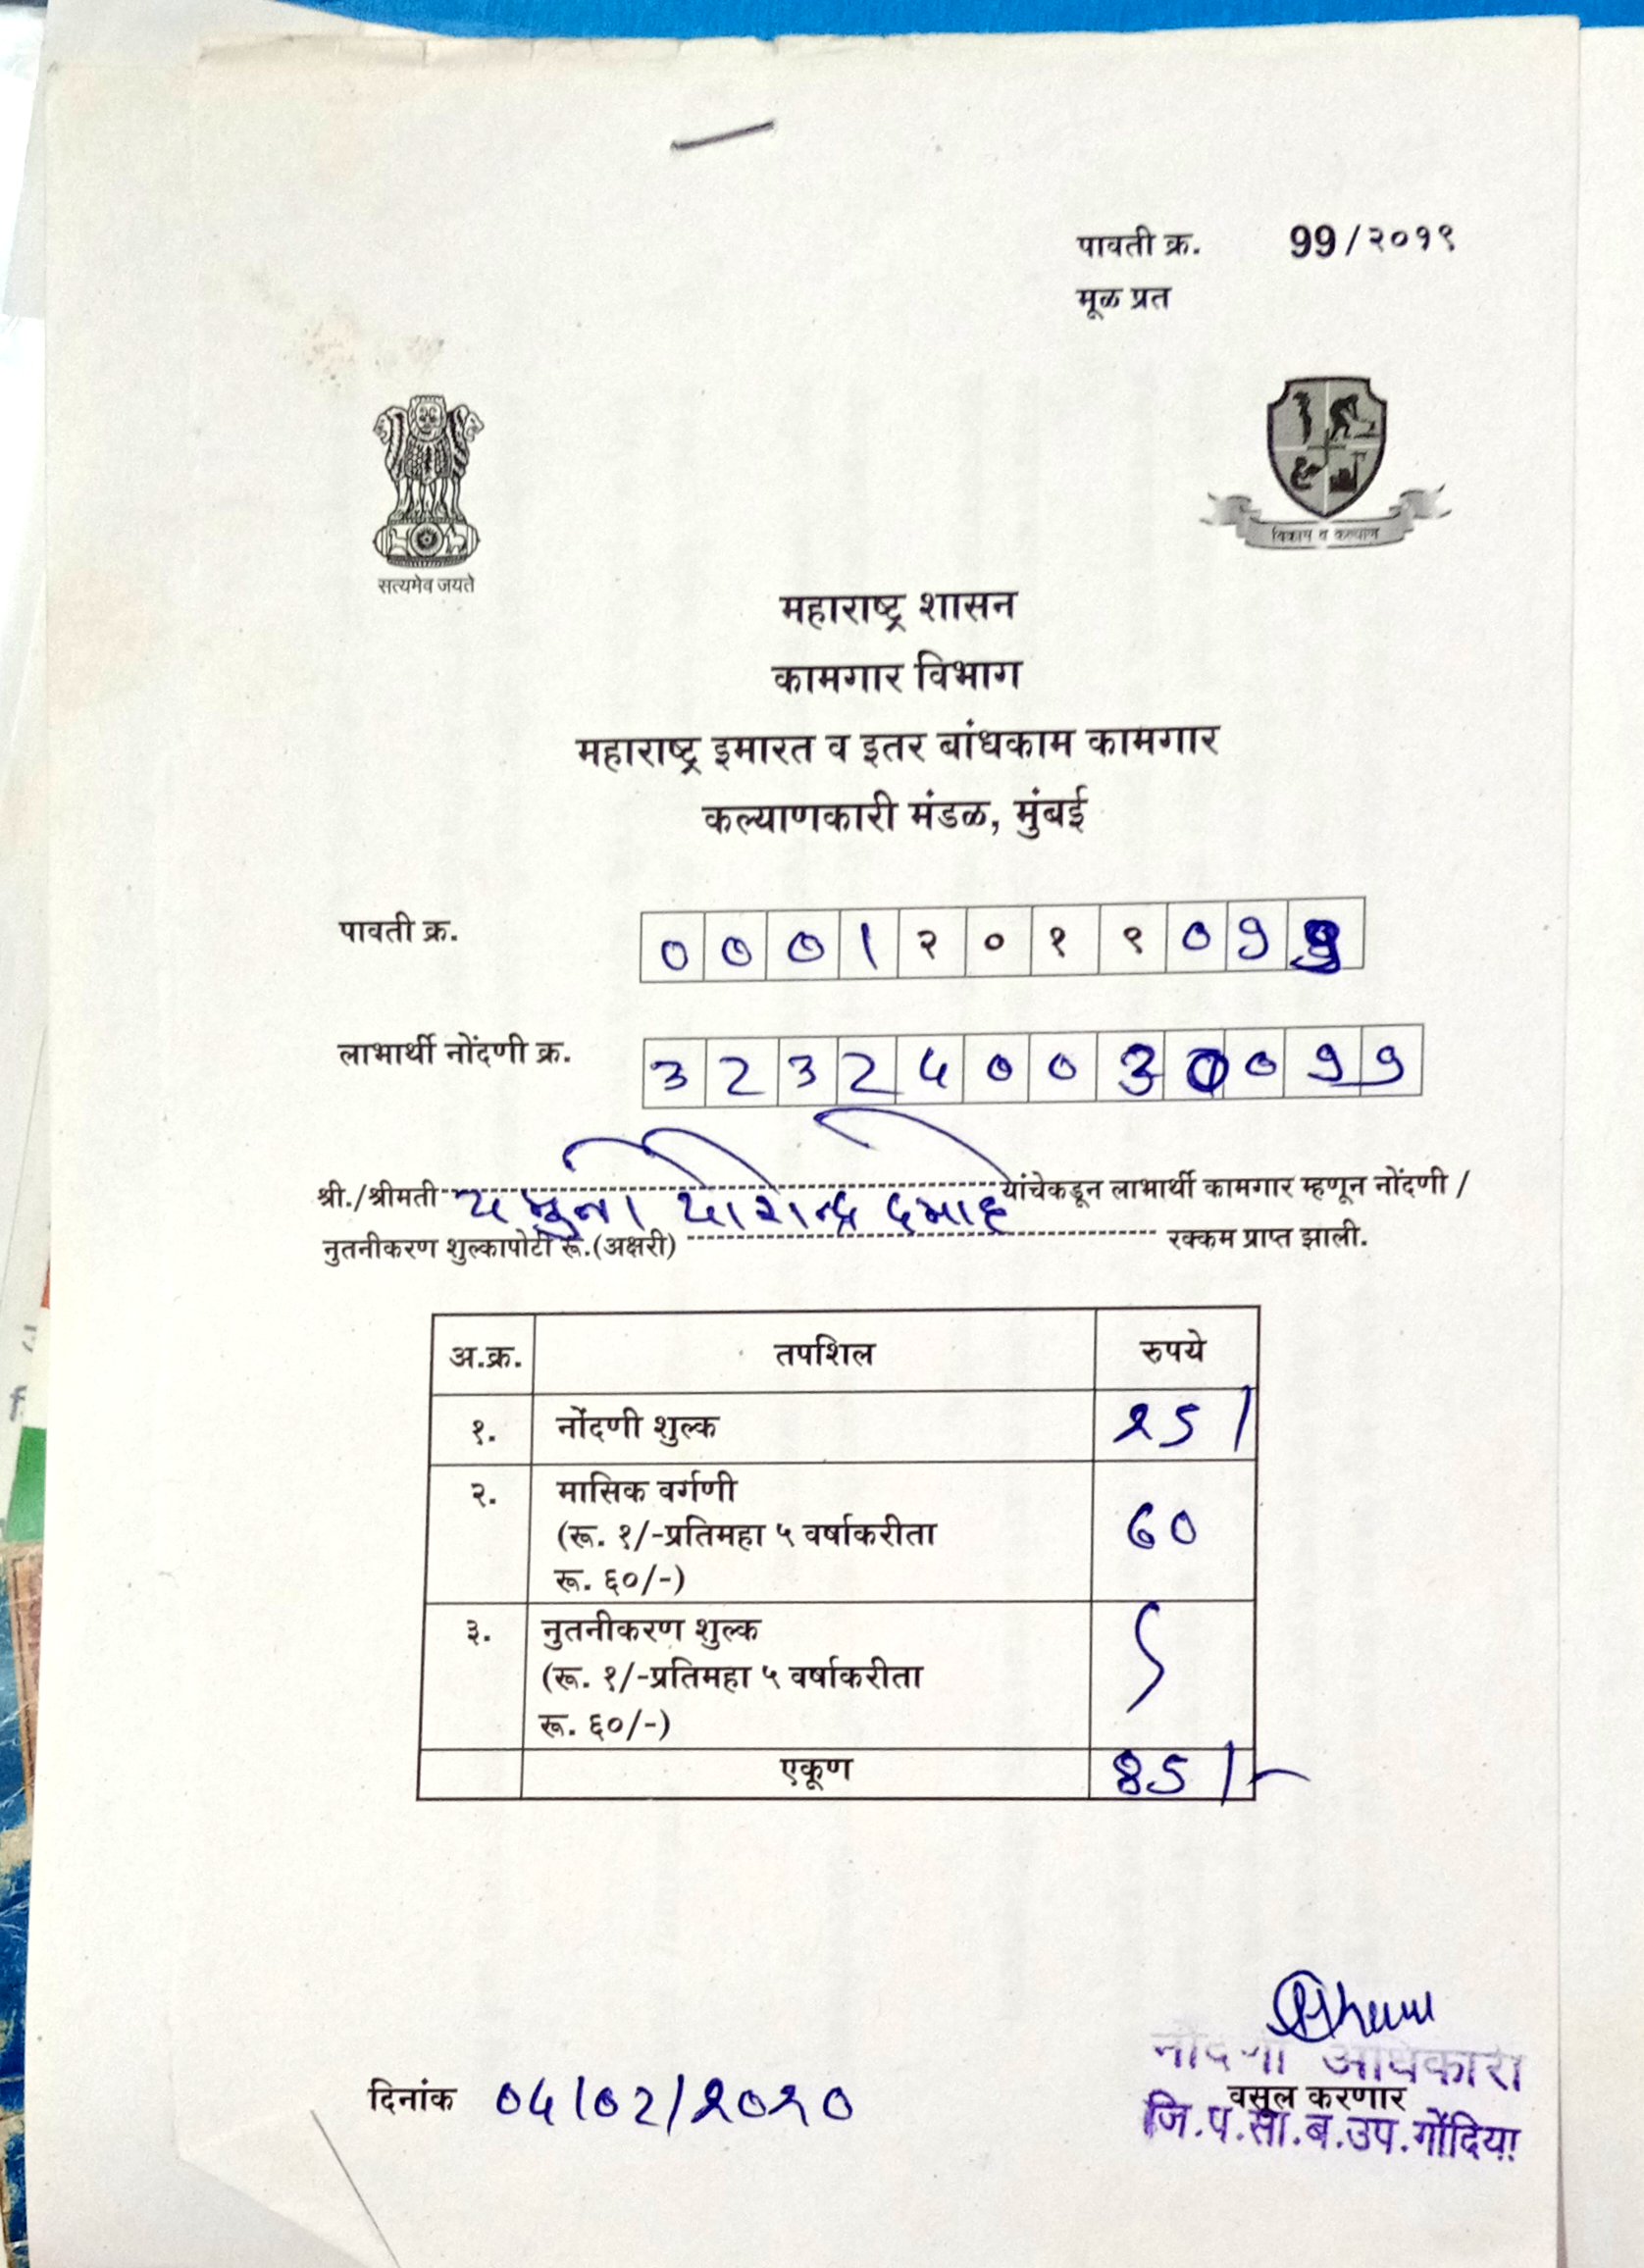 पावती क्र. 99/२०१९
मूळ प्रत
सत्यमेव जयते
विकास व कल्याण
महाराष्ट्र शासन
कामगार विभाग
महाराष्ट्र इमारत व इतर बांधकाम कामगार
कल्याणकारी मंडळ, मुंबई
पावती क्र. 0 0 0 1 २ ० १ ९ 0 9 9
लाभार्थी नोंदणी क्र. 3 2 3 2 4 0 0 3 0 0 9 9
श्री./श्रीमती यमुना योगेन्द्र दमाहे यांचेकडून लाभार्थी कामगार म्हणून नोंदणी /
नुतनीकरण शुल्कापोटी रू.(अक्षरी) रक्कम प्राप्त झाली.
अ.क्र. तपशिल रुपये
१. नोंदणी शुल्क 25/
२. मासिक वर्गणी
(रू. १/-प्रतिमहा ५ वर्षाकरीता 60
रू. ६०/-)
३. नुतनीकरण शुल्क
(रू. १/-प्रतिमहा ५ वर्षाकरीता
रू. ६०/-)
एकूण 85/-
नोंदणी अधिकारी
दिनांक 04/02/2020 वसूल करणार
जि.प.सा.ब.उप.गोंदिया